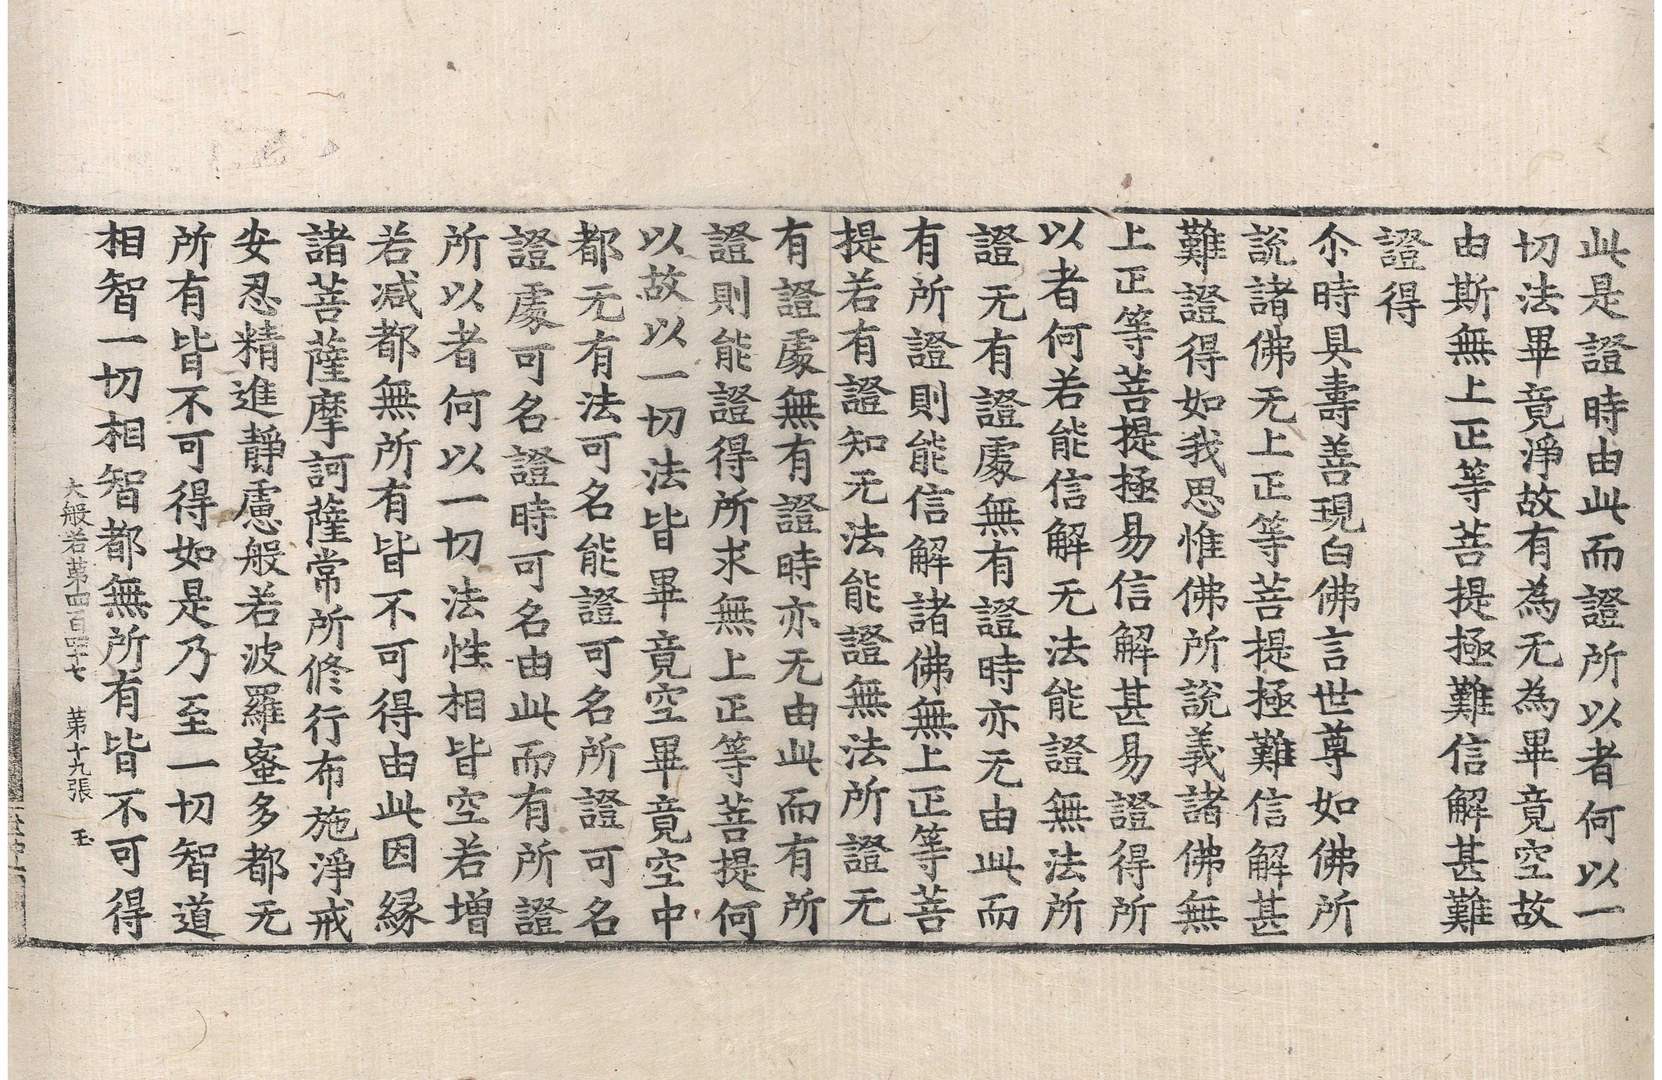 此是證時由此而證所以者何以一
切法畢竟淨故有為无為畢竟空故
由斯無上正等菩提極難信解甚難
證得
尒時具壽善現白佛言世尊如佛所
說諸佛无上正等菩提極難信解甚
難證得如我思惟佛所說義諸佛無
上正等菩提極易信解甚易證得所
以者何若能信解无法能證無法所
證无有證處無有證時亦无由此而
有所證則能信解諸佛無上正等菩
提若有證知无法能證無法所證无
有證處無有證時亦无由此而有所
證則能證得所求無上正等菩提何
以故以一切法皆畢竟空畢竟空中
都无有法可名能證可名所證可名
證處可名證時可名由此而有所證
所以者何以一切法性相皆空若增
若減都無所有皆不可得由此因緣
諸菩薩摩訶薩常所修行布施淨戒
安忍精進靜慮般若波羅蜜多都无
所有皆不可得如是乃至一切智道
相智一切相智都無所有皆不可得
大般若第四百四十七 第十九張 玉